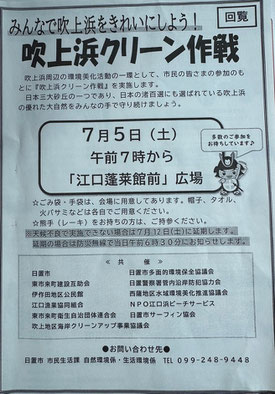 みんなで吹上浜をきれいにしよう!
回覧
吹上浜クリーン作戦
吹上浜周辺の環境美化活動の一環として、市民の皆さまの参加のも
とに『吹上浜クリーン作戦』を実施します。
日本三大砂丘の一つであり、日本の渚百選にも選ばれている吹上浜
の優れた大自然をみんなの手で守り続けましょう。
7月5日(土)
午前7時から
「江口蓬莱館前」広場
多数のご参加を
お待ちしています♪
☆ごみ袋・手袋は、会場に用意してあります。帽子、タオル、
火バサミなどは各自でご用意ください。
☆熊手(レーキ)をお持ちの方は、ご持参ください。
※天候不良で実施できない場合は7月12日(土)に延期します。
延期の場合は防災無線で当日午前6時30分にお知らせします。
≪ 共 催 ≫
日置市
日置市多面的環境保全協議会
東市来町建設互助会
日置警察署管内沿岸防犯協力会
伊作田地区公民館
西薩地区水域環境美化推進協議会
江口漁業協同組合
NPO江口浜ビーチサービス
東市来町衛生自治団体連合会
日置市サーフィン協会
吹上地区海岸クリーンアップ事業協議会
●お問い合わせ先●
日置市 市民生活課 自然環境係・生活環境係 TEL 099-248-9448